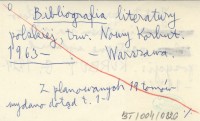 Bibliografia literatury
polskiej, tzw. Nowy Korbut.
1963 – . – Warszawa.
Z planowanych 19 tomów
wydano dotąd t. 1-